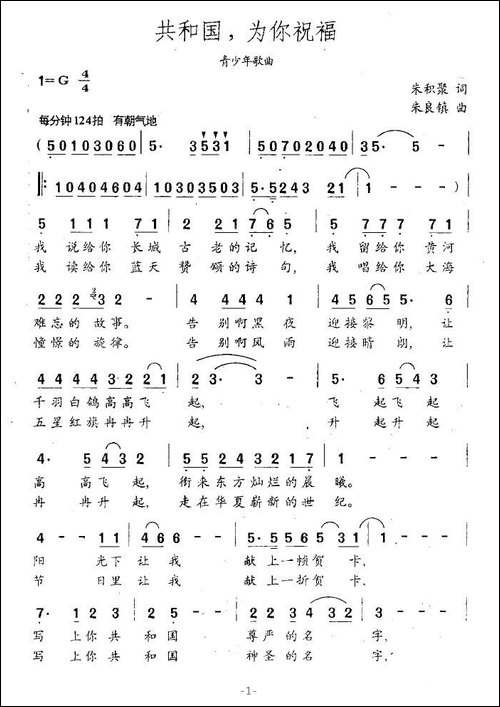 共和国，为你祝福
青少年歌曲
1=G 4/4
朱积聚 词
朱良镇 曲
每分钟124拍 有朝气地
( 50103060 | 5· 3531 | 50702040 | 35· 5 |
‖: 10404604 | 10303503 | 5·5243 21 | 1 - - - )
5 111 71 | 2 221 765 | 5 777 67 |
我 说给你 长城 古 老的记 忆, 我 留给你 黄河
我 读给你 蓝天 赞 颂的诗 句, 我 唱给你 大海
222 232 - | 1 1112 2 | 45655 5· 6 |
难忘的 故事。 告 别啊黑 夜 迎接黎 明, 让
憧憬的 旋律。 告 别啊风 雨 迎接晴 朗, 让
4444 33221 | 2·3 - - | 5· 6543 |
千羽白鸽高高飞 起, 飞 起飞 起,
五星红旗冉冉升 起, 升 起升 起,
4· 5432 | 5512 4323 | 1 - - - |
高 高飞 起, 衔来东方灿烂的晨 曦。
冉 冉升 起, 走在华夏崭新的世 纪。
4 - - 11 | 466 - - | 5·55565 | 31 - - |
阳 光下 让我 献 上一帧贺 卡,
节 日里 让我 献 上一折贺 卡,
7· 123 22 | 5· - - - | 2·22343 | 32 3 - - |
写 上你 共 和国 尊 严的名 字,
写 上你 共 和国 神 圣的名 字,
-1-